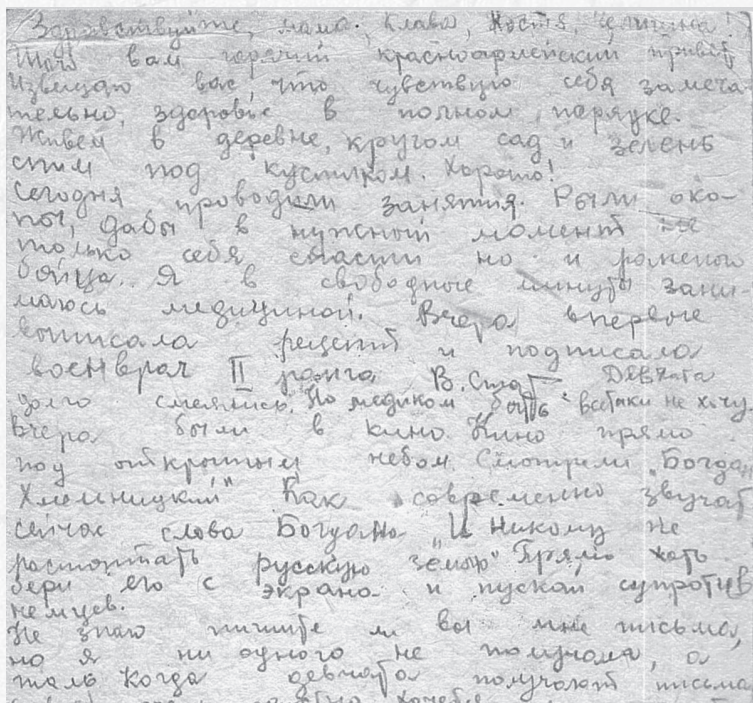 Здравствуйте, мама, Клава, Костя,
Шлю вам горячий красноармейский привет
Извещаю вас, что чувствую себя замеча-
тельно, здоровье в полном порядке.
Живем в деревне, кругом сад и зелень
спим под кустиком. Хорошо!
Сегодня проводили занятия. Рыли око-
пы, дабы в нужный момент не
только себя спасти но и раненого
бойца. Я в свободные минуты зани-
маюсь медициной. Вчера впервые
выписала рецепт и подписала
военврач II ранга В. Девчата
долго смеялись. Но медиком быть всетаки не хочу.
Вчера были в кино. Кино прямо
под открытым небом. Смотрели „Богдан
Хмельницкий" Как современно звучат
сейчас слова Богдана „И никому не
растоптать русскую землю" Прямо хоть
бери его с экрана и пускай супротив
немцев.
Не знаю пишите ли вы мне письма,
но я ни одного не получала, а
жаль когда девчата получают письма